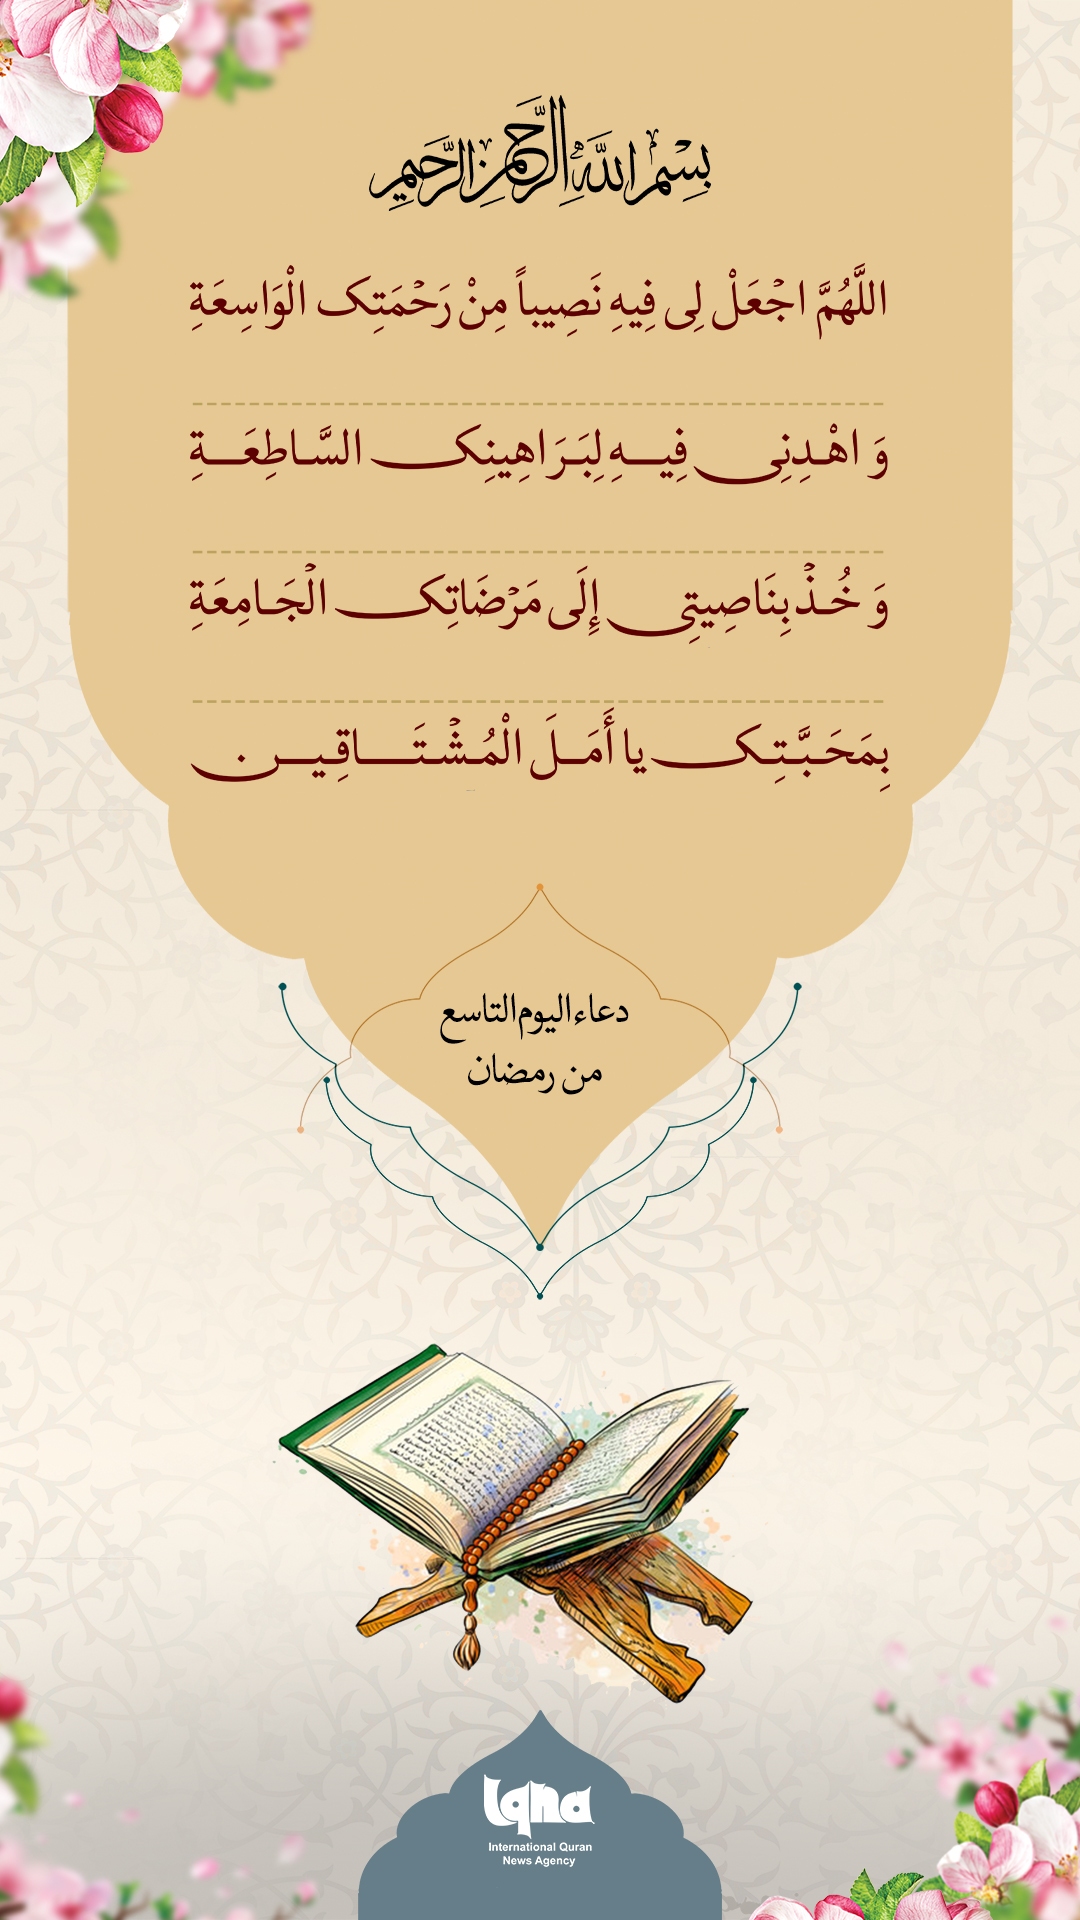 بِسْمِ اللَّهِ الرَّحْمَنِ الرَّحِيمِ
اللَّهُمَّ اجْعَلْ لِی فِیهِ نَصِیباً مِنْ رَحْمَتِک الْوَاسِعَةِ
وَ اهْدِنِی فِیهِ لِبَرَاهِینِک السَّاطِعَةِ
وَ خُذْ بِنَاصِیتِی إِلَى مَرْضَاتِک الْجَامِعَةِ
بِمَحَبَّتِک یا أَمَلَ الْمُشْتَاقِین.
دعاء الیوم التاسع
من رمضان
iqna
International Quran
News Agency